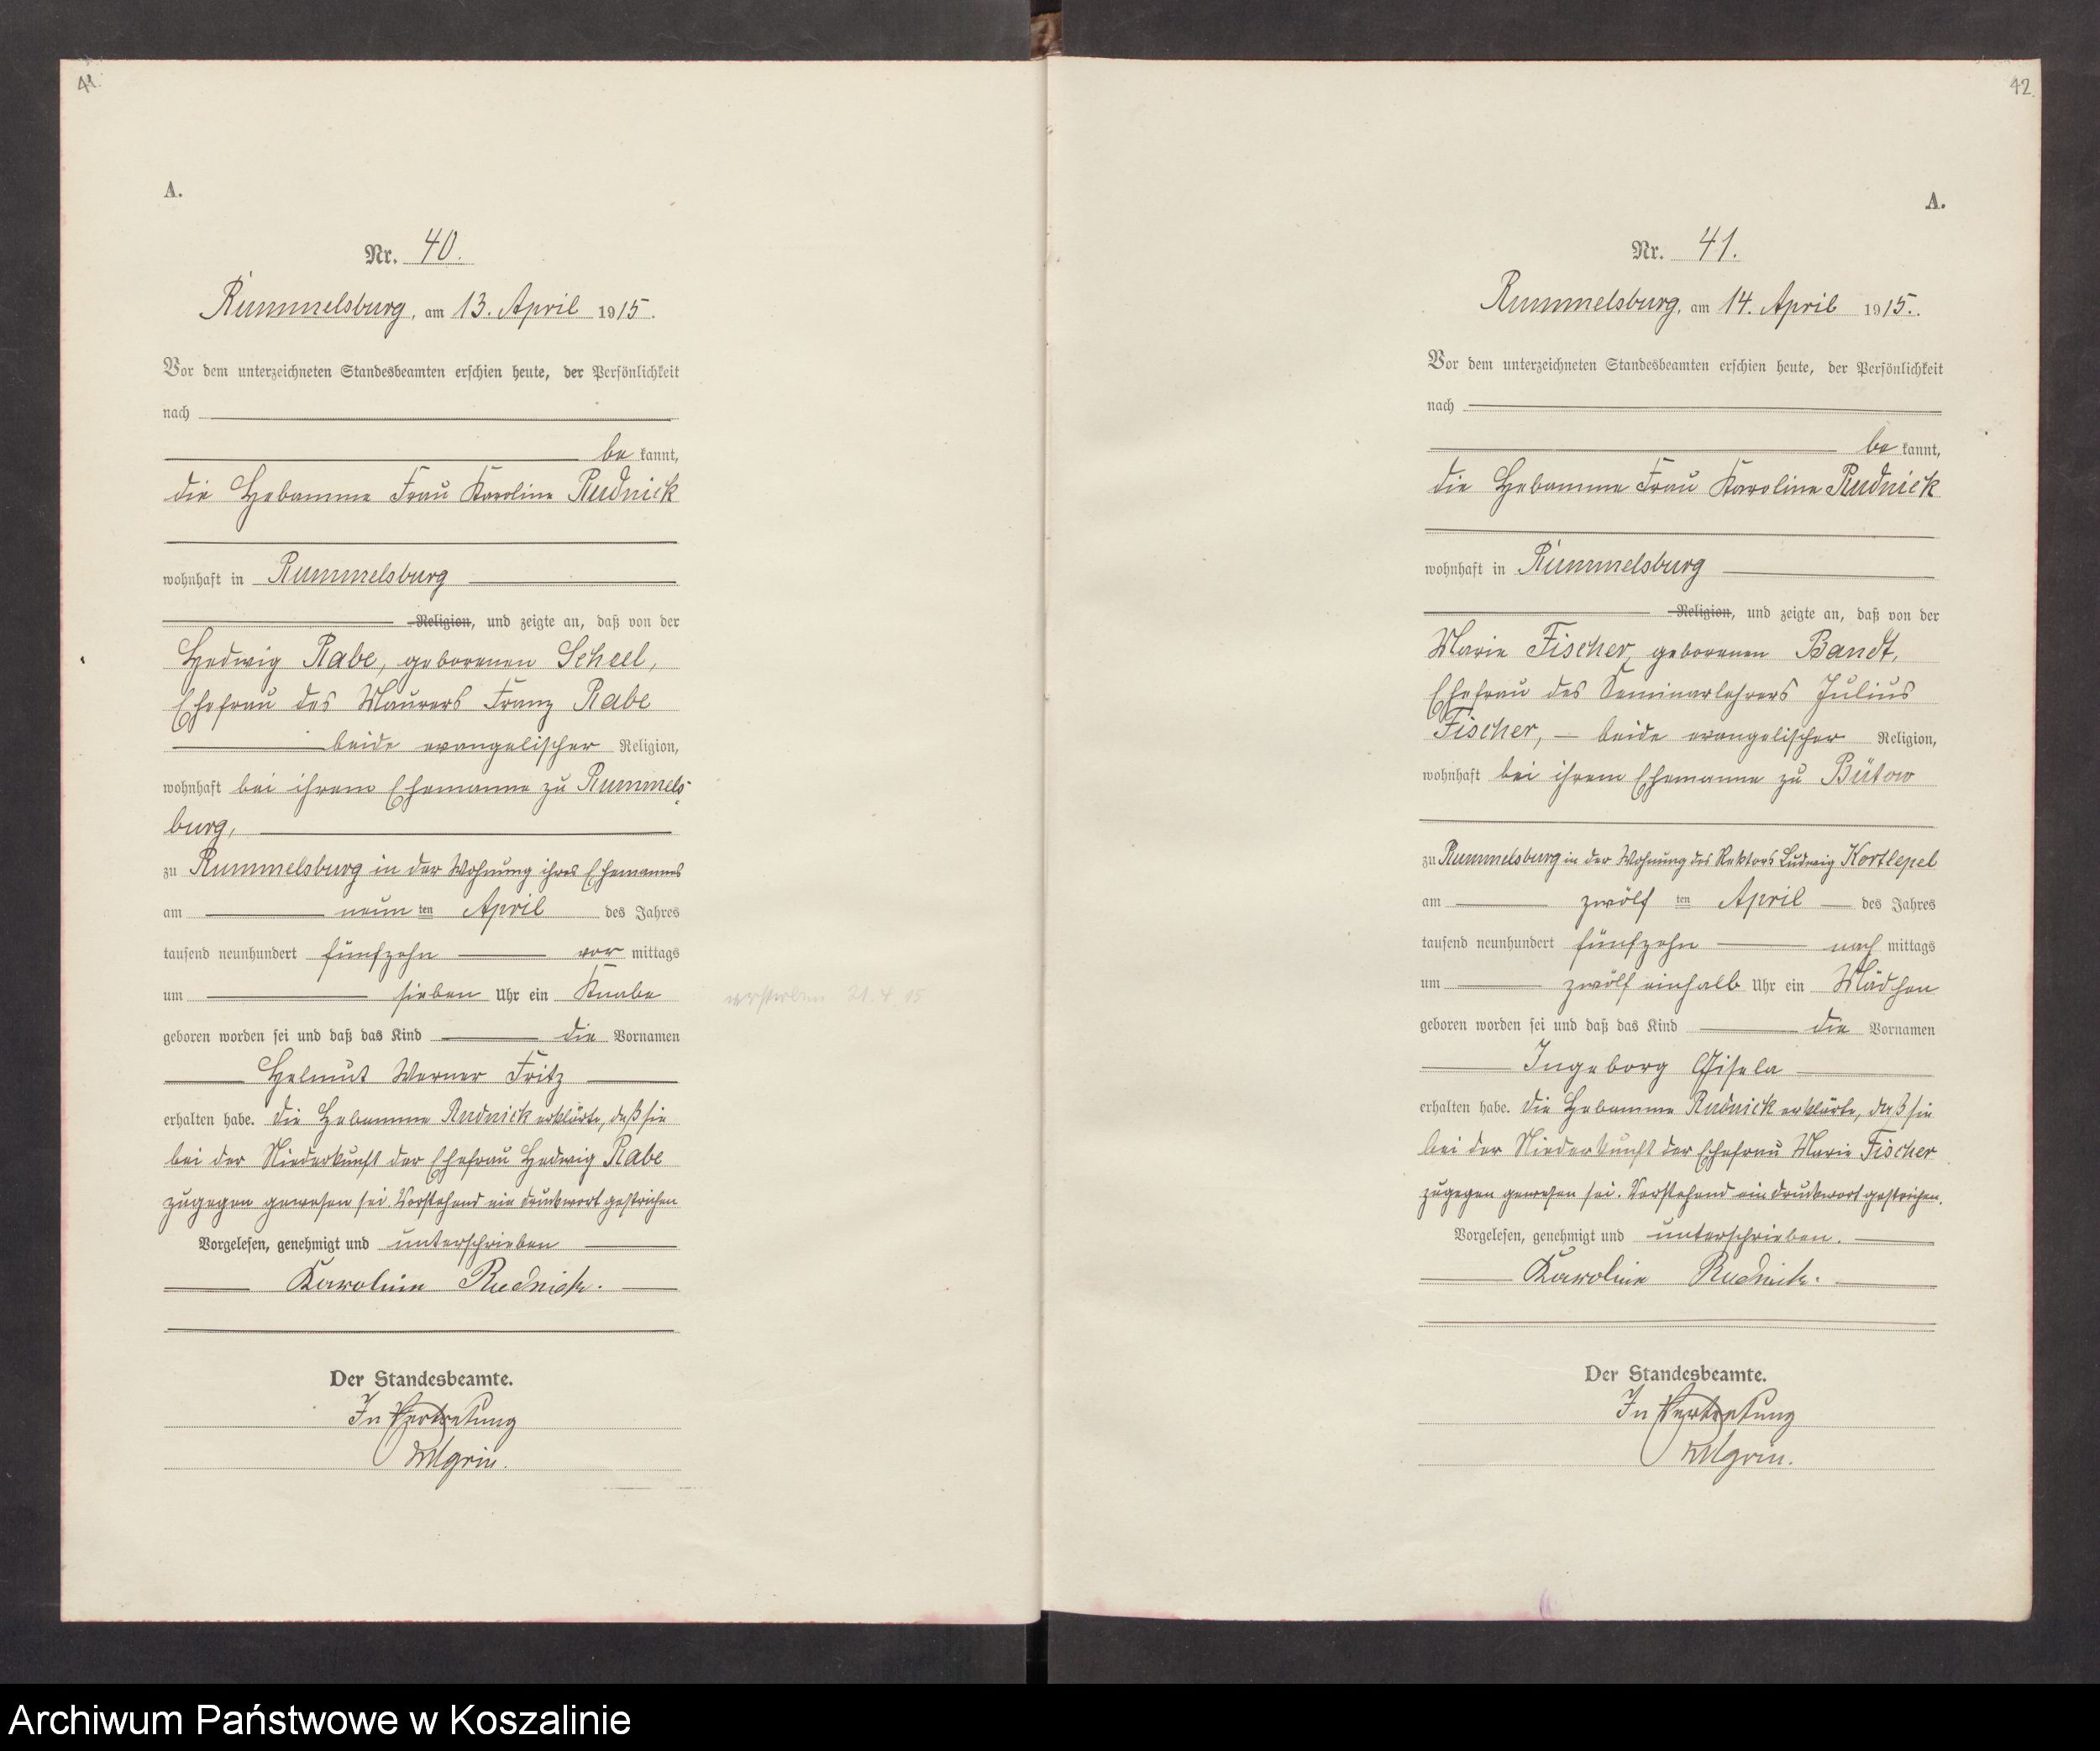 41.
A.
Nr. 40.
Rummelsburg, am 13. April 1915.
Vor dem unterzeichneten Standesbeamten erschien heute, der Persönlichkeit
nach
be kannt,
die Hebamme Frau Karoline Rudnick
wohnhaft in Rummelsburg
Religion, und zeigte an, daß von der
Hedwig Rabe, geborenen Scheel,
Ehefrau des Maurers Franz Rabe
beide evangelischer Religion,
wohnhaft bei ihrem Ehemanne zu Rummels-
burg,
zu Rummelsburg in der Wohnung ihres Ehemannes
am neun ten April des Jahres
tausend neunhundert fünfzehn vor mittags
um sieben Uhr ein Knabe
verstorben 21. 4. 15
geboren worden sei und daß das Kind die Vornamen
Helmut Werner Fritz
erhalten habe. Die Hebamme Rudnick erklärte, daß sie
bei der Niederkunft der Ehefrau Hedwig Rabe
zugegen gewesen sei. Vorstehend ein Druckwort gestrichen
Vorgelesen, genehmigt und unterschrieben
Karoline Rudnick.
Der Standesbeamte.
In Vertretung
42.
A.
Nr. 41.
Rummelsburg, am 14. April 1915.
Vor dem unterzeichneten Standesbeamten erschien heute, der Persönlichkeit
nach
be kannt,
die Hebamme Frau Karoline Rudnick
wohnhaft in Rummelsburg
Religion, und zeigte an, daß von der
Marie Fischer, geborenen Bandt,
Ehefrau des Seminarlehrers Julius
Fischer, – beide evangelischer Religion,
wohnhaft bei ihrem Ehemanne zu Bütow
zu Rummelsburg in der Wohnung des Rektors Ludwig Kortlepel
am zwölf ten April des Jahres
tausend neunhundert fünfzehn nach mittags
um zwölf einhalb Uhr ein Mädchen
geboren worden sei und daß das Kind die Vornamen
Ingeborg Gisela
erhalten habe. Die Hebamme Rudnick erklärte, daß sie
bei der Niederkunft der Ehefrau Marie Fischer
zugegen gewesen sei. Vorstehend ein Druckwort gestrichen.
Vorgelesen, genehmigt und unterschrieben.
Karoline Rudnick.
Der Standesbeamte.
In Vertretung
Archiwum Państwowe w Koszalinie